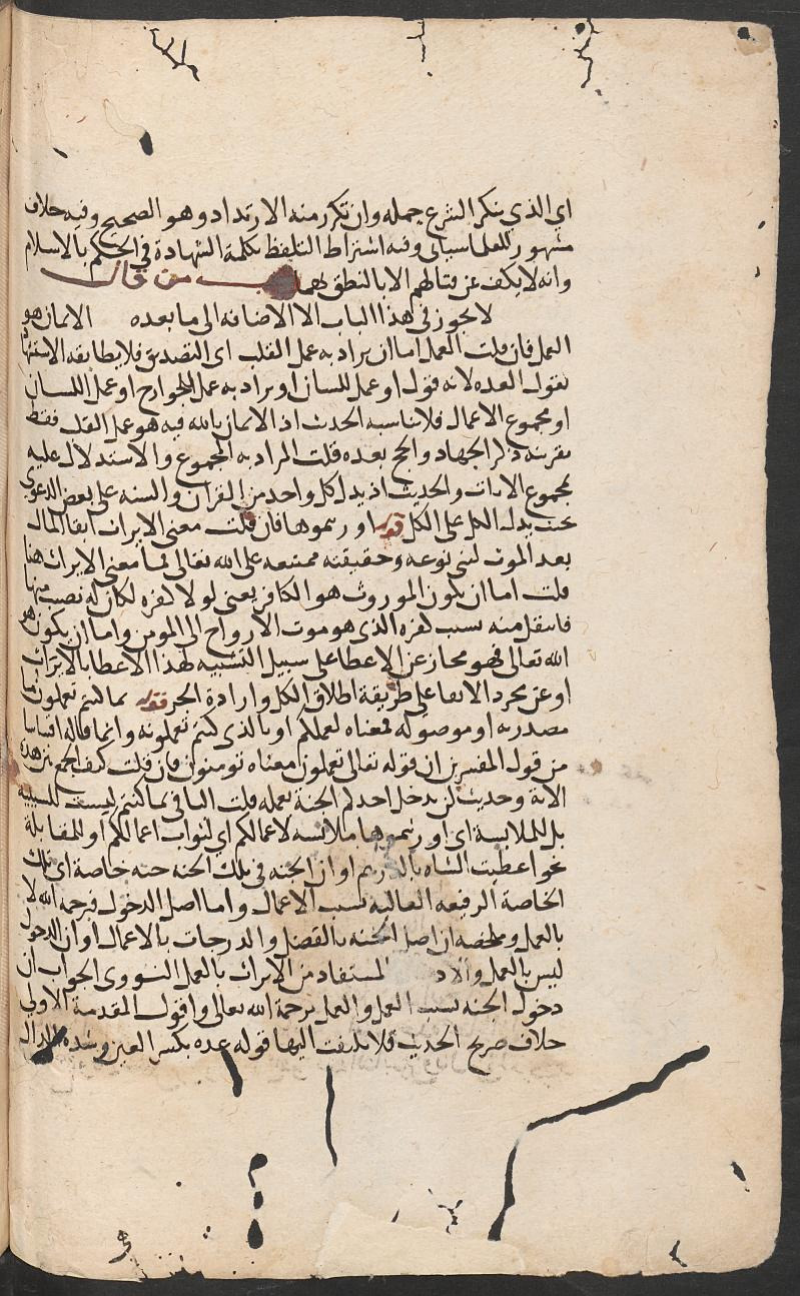 اي الذي ينكر الشرع جمله وان تكرر منه الارتداد وهو الصحيح وفيه خلاف
مشهور للعلما سياتى وفيه اشتراط التلفظ بكلمة الشهادة في الحكم بالاسلام
وانه لا يكف عن قتالهم الا بالنطق بهما باب من قال
لا يجوز في هذا الباب الا الاضافه الى ما بعده الايمان هو
العمل فان قلت العمل اما ان يراد به عمل القلب اى التصديق فلا يطابقه الاستشهاد
بقول العده لانه قول او عمل للسان او يراد به عمل الجوارح او عمل اللسان
او مجموع الاعمال فلا يناسبه الحديث اذ الايمان بالله فيه هو عمل القلب فقط
بقرينه ذكر الجهاد والحج بعده قلت المراد به المجموع والاستدلال عليه
بمجموع الايات والحديث اذ يدل كل واحد من القران والسنه على بعض الدعوى
بحيث يدل الكل على الكل قوله اورثتموها فان قلت معنى الايراث ابقا المال
بعد الموت لمن وحقيقته ممتنعه على الله تعالى فما معنى الايراث هنا
قلت اما ان يكون الموروث هو الكافر يعنى لولا كفره لكان له نصيب منها
فانتقل منه بسبب كفره الذى هو موت الارواح الى المومن واما ان يكون هو
الله تعالى فهو مجاز عن الاعطا على سبيل التشبيه لهذا الاعطا بالايراث
او عن مجرد الابقا على طريقة اطلاق الكل وارادة الجز قوله بما كنتم تعملون ما
مصدريه او موصوله فمعناه بعملكم او بالذى كنتم تعملونه وانما قاله اقتباسا
من قول المفسرين ان قوله تعالى تعملون معناه تومنون فان قلت كيف الجمع بين هذه
الاية وحديث لن يدخل احدكم الجنة بعمله قلت البا في بما كنتم ليست للسببيه
بل للملابسة اى اورثتموها ملابسه لاعمالكم اي لثواب اعمالكم او للمقابلة
نحو اعطيت الشاه بالدرهم او ان الجنه في تلك الجنه جنه خاصة اى تلك
الخاصة الرفيعه العاليه بسبب الاعمال واما اصل الدخول فبرحمه الله لا
بالعمل وملخصه ان اصل الجنه بالفضل والدرجات بالاعمال او ان الدخول
ليس بالعمل المستفاد من الايراث بالعمل النووى الجواب ان
دخول الجنه بسبب العمل والعمل برحمة الله تعالى واقول المقدمة الاولى
خلاف صريح الحديث فلا يلتفت اليها قوله عده بكسر العين وشدة الدال